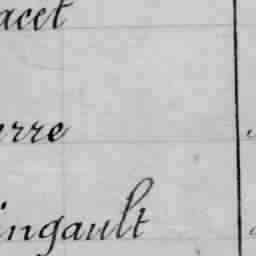 acet
erre
ingault